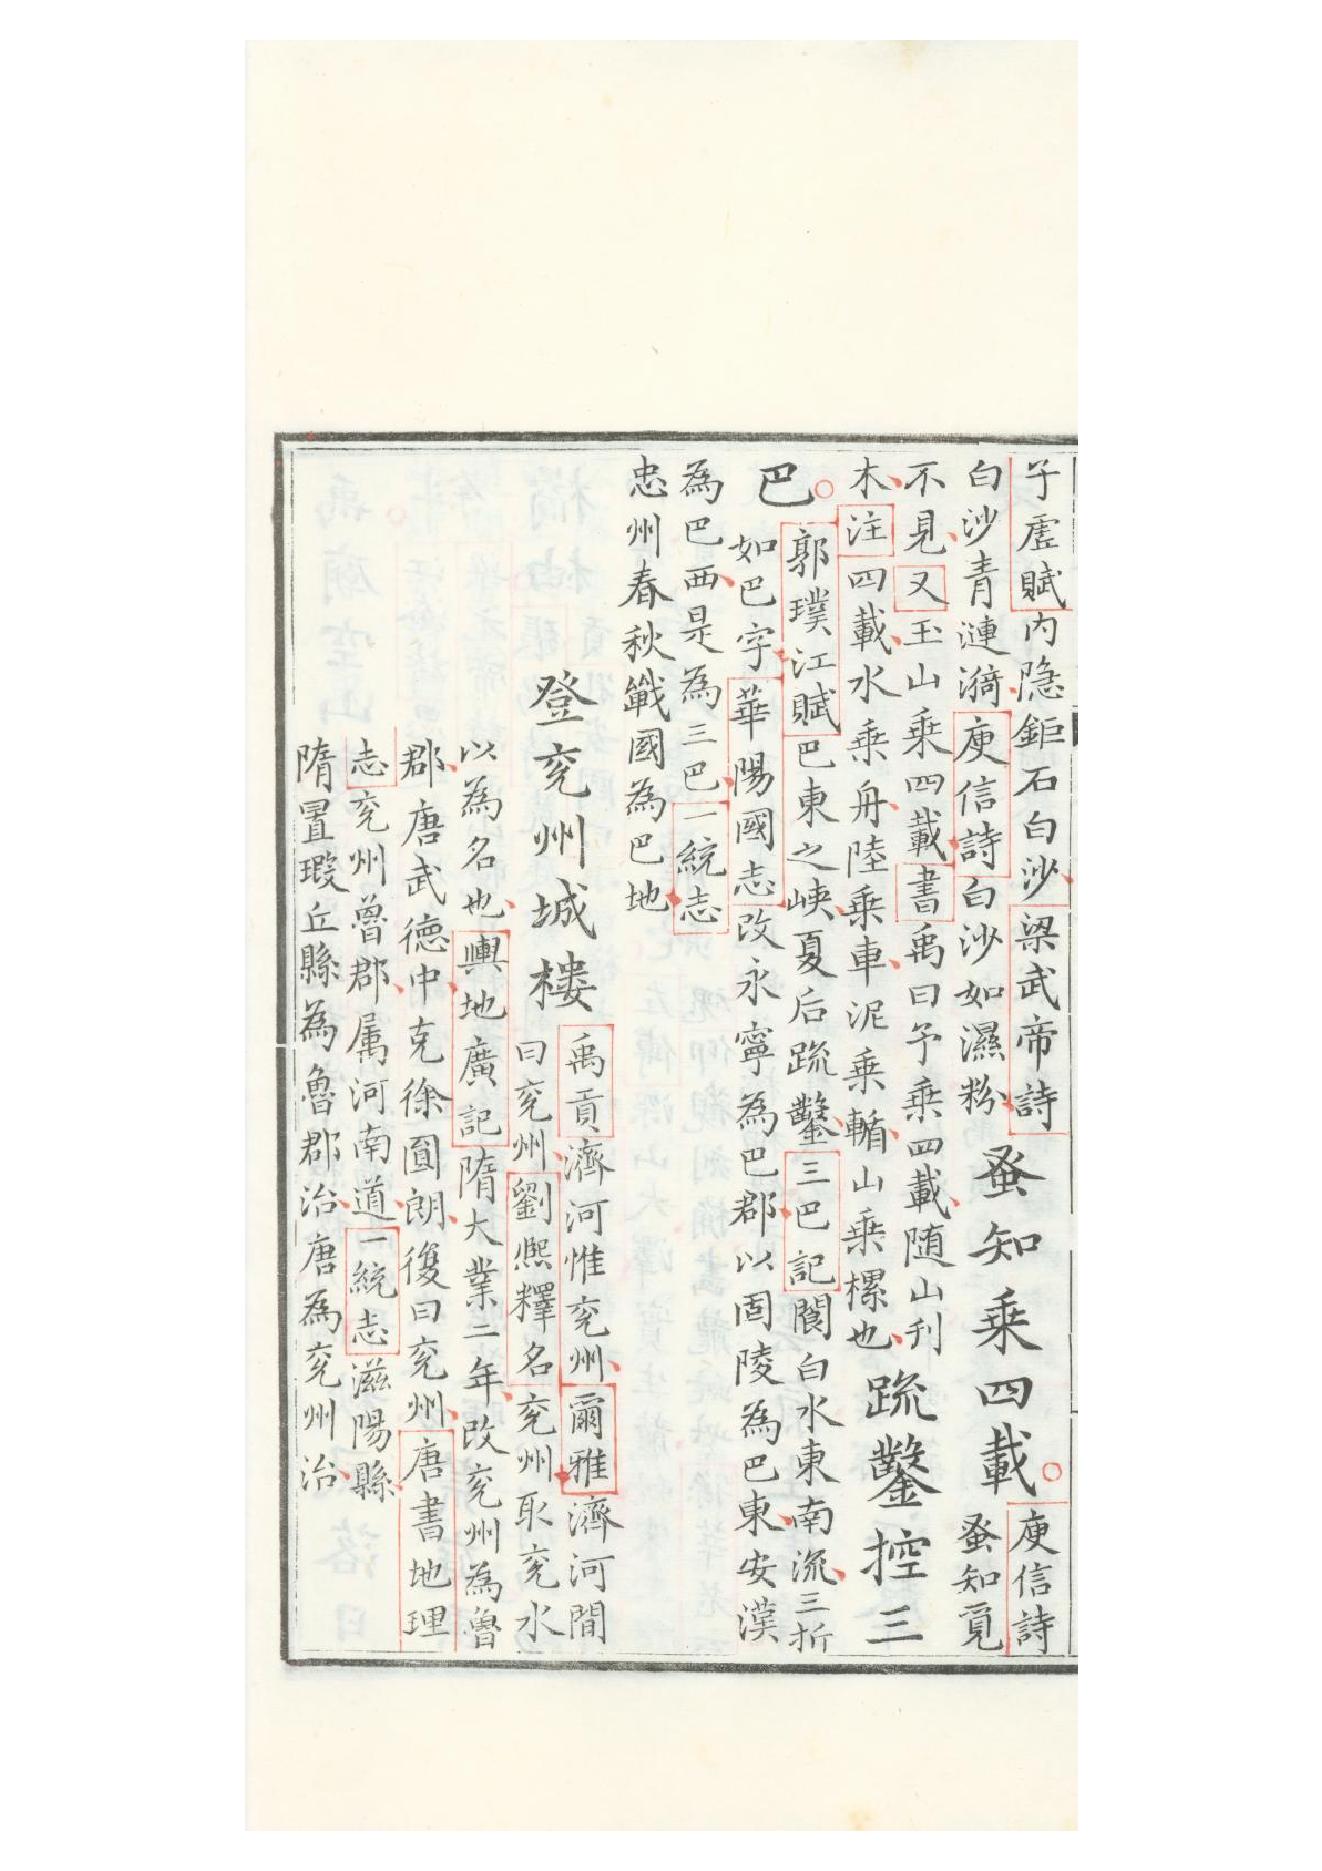 子虛賦内隐鉅石白沙梁武帝詩
白沙青漣漪庾信詩白沙如濕粉
蚤知乘四載
庾信詩
蚤知覓
不見又玉山乘四載書禹曰予乘四載随山刋
木注四載水乘舟陸乘車泥乘輴山乘樏也
疏鑿控三
巴
郭璞江賦巴東之峽夏后疏鑿三巴記閬白水東南流三折
如巴字華陽國志改永寧為巴郡以固陵為巴東安漢
為巴西是為三巴一統志
忠州春秋戰國為巴地
登兖州城樓
禹貢濟河惟兖州爾雅濟河間
曰兖州劉熈釋名兖州取兖水
以為名也輿地廣記隋大業二年改兖州為魯
郡唐武德中克徐圎朗復曰兖州唐書地理
志兖州魯郡属河南道一統志滋陽縣
隋置瑕丘縣為魯郡治唐為兖州治